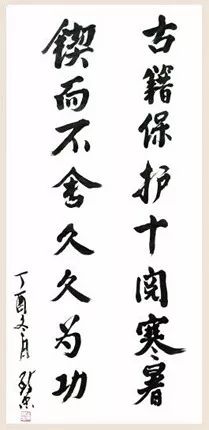 古籍保护十阅寒暑
锲而不舍久久为功
丁酉冬月